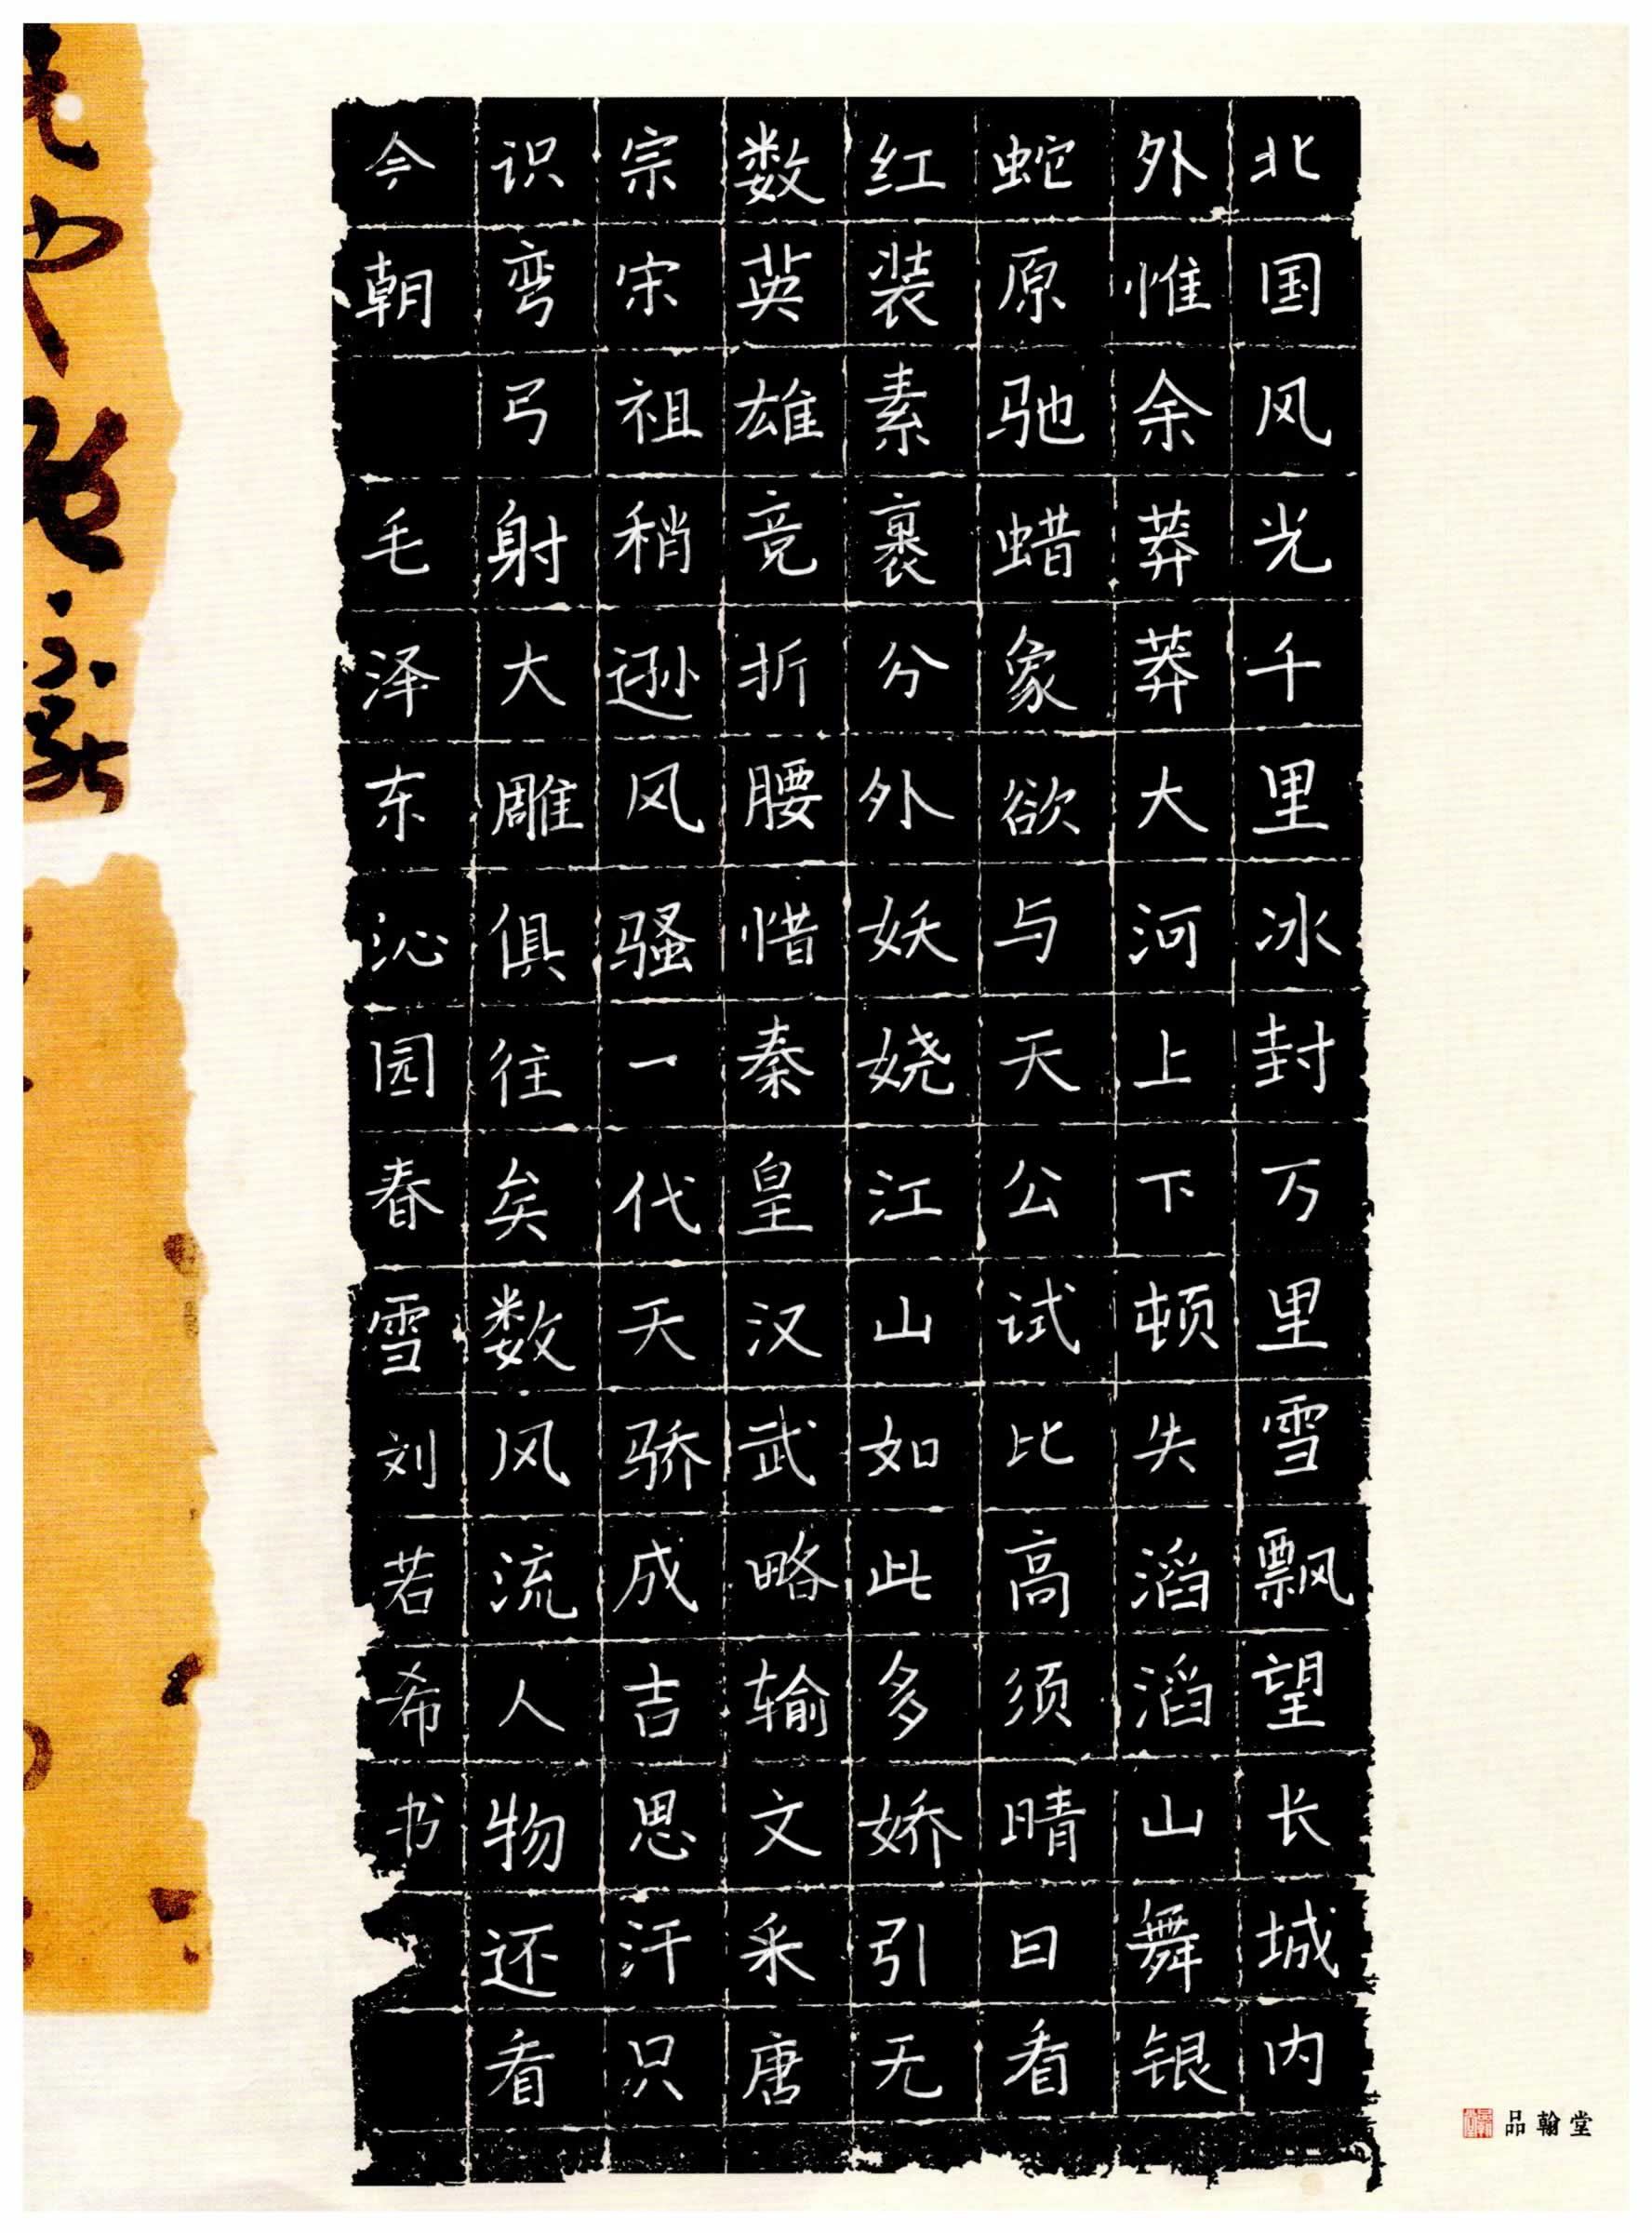 北国风光千里冰封万里雪飘望长城内
外惟余莽莽大河上下顿失滔滔山舞银
蛇原驰蜡象欲与天公试比高须晴日看
红装素裹分外妖娆江山如此多娇引无
数英雄竞折腰惜秦皇汉武略输文采唐
宗宋祖稍逊风骚一代天骄成吉思汗只
识弯弓射大雕俱往矣数风流人物还看
今朝 毛泽东沁园春雪刘若希书
品翰堂